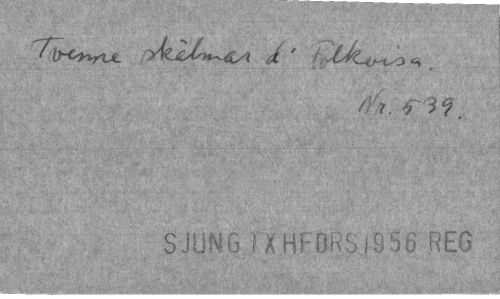 Tvenne skälmar d' Folkvisa.
Nr. 539.
SJUNG IX HFDRS 1956 REG